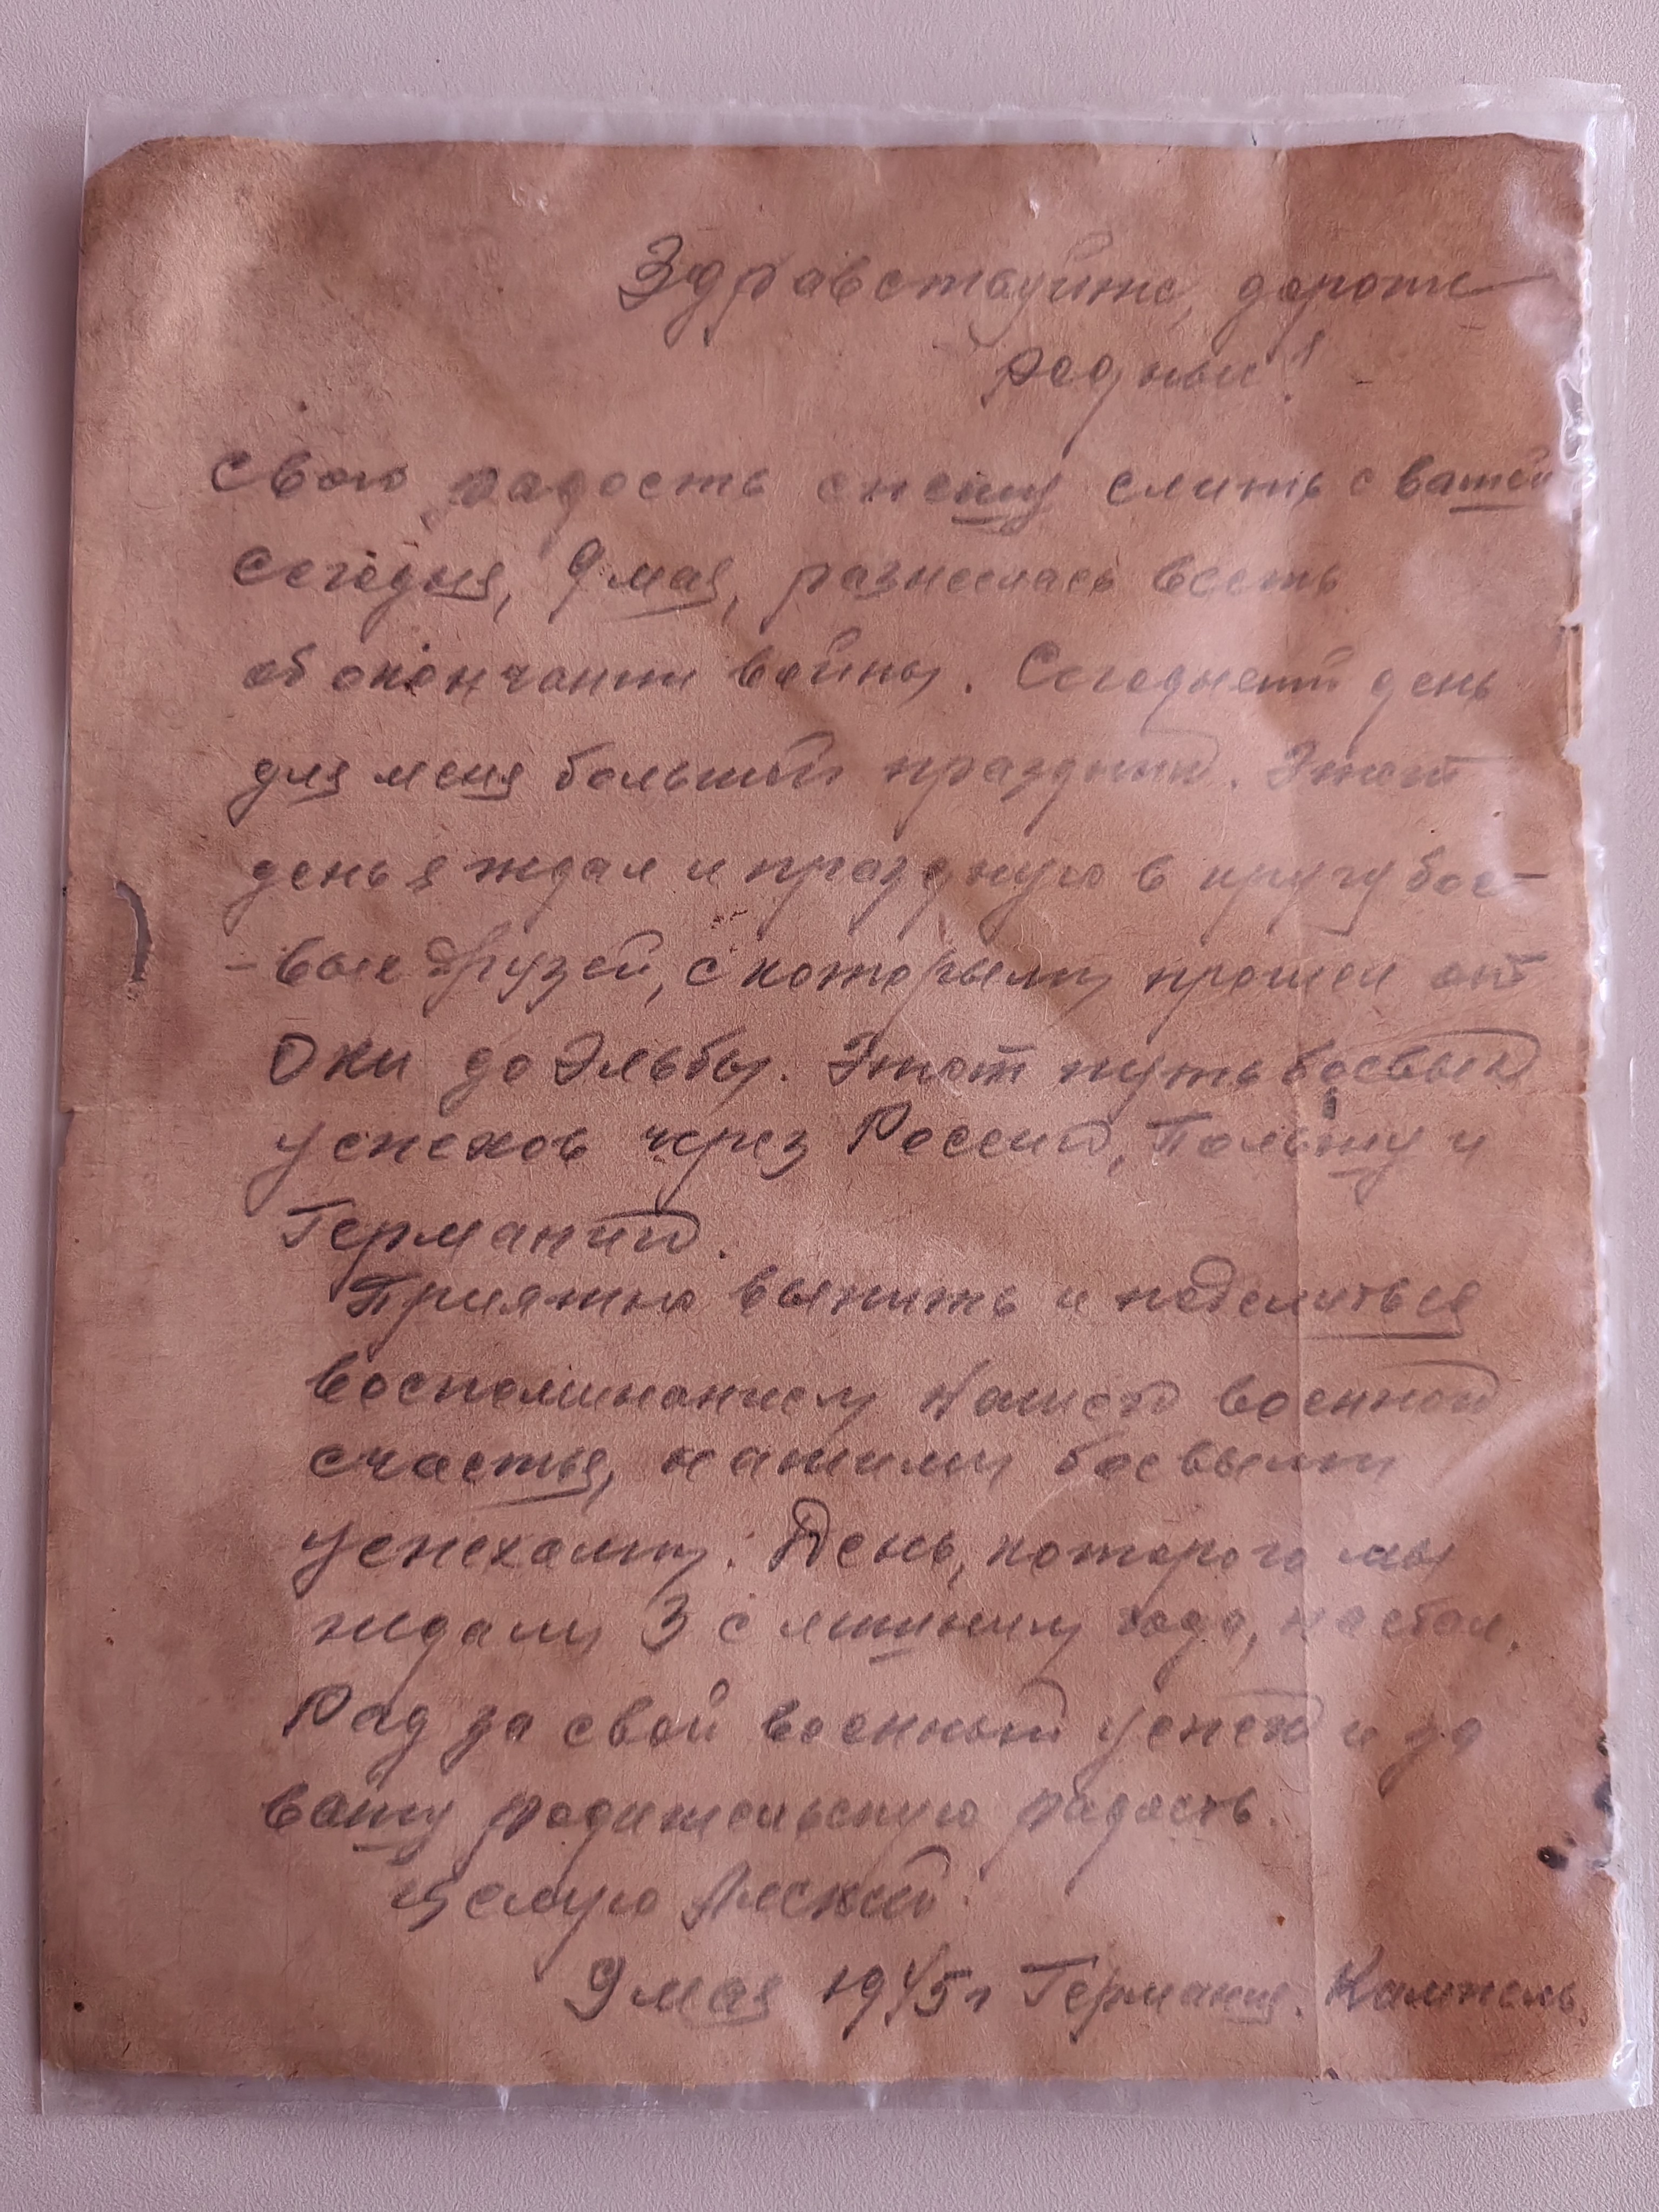 Здравствуйте, дорогие
родные!
Свою радость спешу слить с вашей
Сегодня, 9 мая, разнеслась весть
об окончании войны. Сегодняшний день
для меня большой праздник. Этот
день я ждал и праздную в кругу бое-
-вых друзей, с которыми прошел от
Оки до Эльбы. Этот путь боевых
успехов через Россию, Польшу и
Германию.
Приятно выпить и поделиться
воспоминанием нашей военной
счастья, нашими боевыми
успехами. День, которого мы
ждали 3 с лишним года, настал.
Рад за свой военный успех и за
вашу родительскую радость.
Целую
9 мая 1945 г Германия.